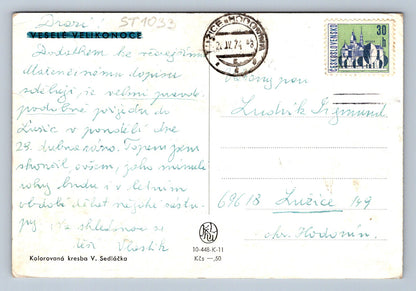 Drazí!
ST1033
VESELÉ VELIKONOCE
Dodatkem ke včerejšímu
mateřskému dopisu
sděluji, že velmi pravdě-
podobně přijedu do
Lužic v pondělí dne
29. dubna ráno. Topení jsem
skončil, ovšem, jako minulé
roky budu i v letním
období dělat nějaké zástu-
py. Na shledanou se
těší Vlastík
Kolorovaná kresba V. Sedláčka
10-448-K-11
Kčs —,50
LUŽICE u HODONÍNA
2. IV. 74
ČESKOSLOVENSKO
30 h
Vážený pan
Ludvík Zigmund
696 18 Lužice 149
okr. Hodonín.